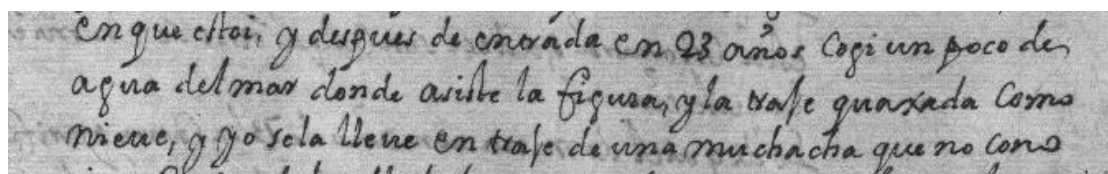 en que estoi, y despues de entrada en 23 años Cogi un poco de
agua del mar donde asiste la figura, y la trase quaxada Como
nieue, y yo se la lleue en traje de una muchacha que no cono